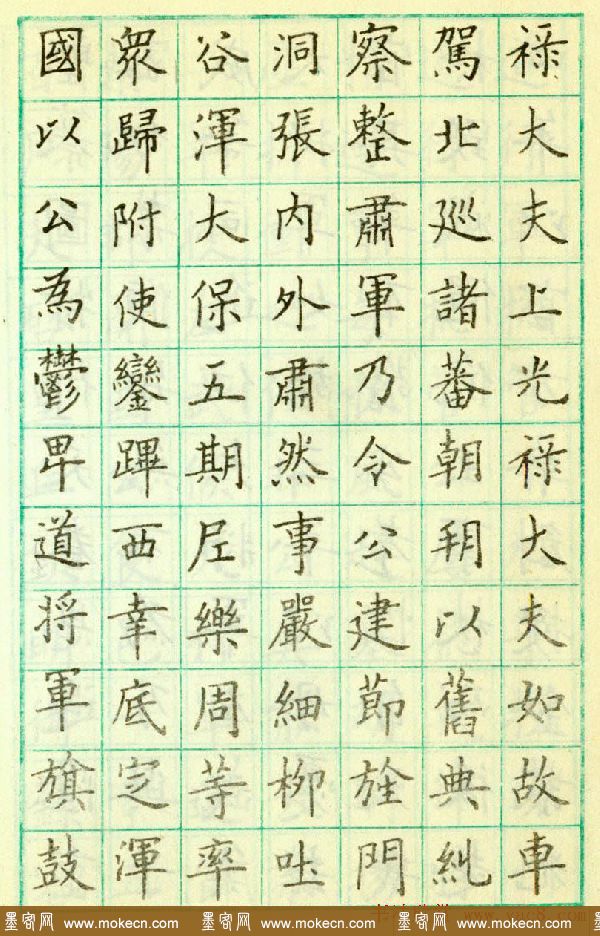 禄大夫上光禄大夫如故車
駕北巡諸蕃朝朔以舊典糺
察整肅軍乃令公建節旌門
洞張内外肅然事嚴細柳吐
谷渾大保五期尼樂周等率
衆歸附使鑾蹕西幸底定渾
國以公為鬱卑道将軍旗鼓
墨客网 www.mokecn.com 墨客网 www.mokecn.com 墨客网 www.mokecn.com